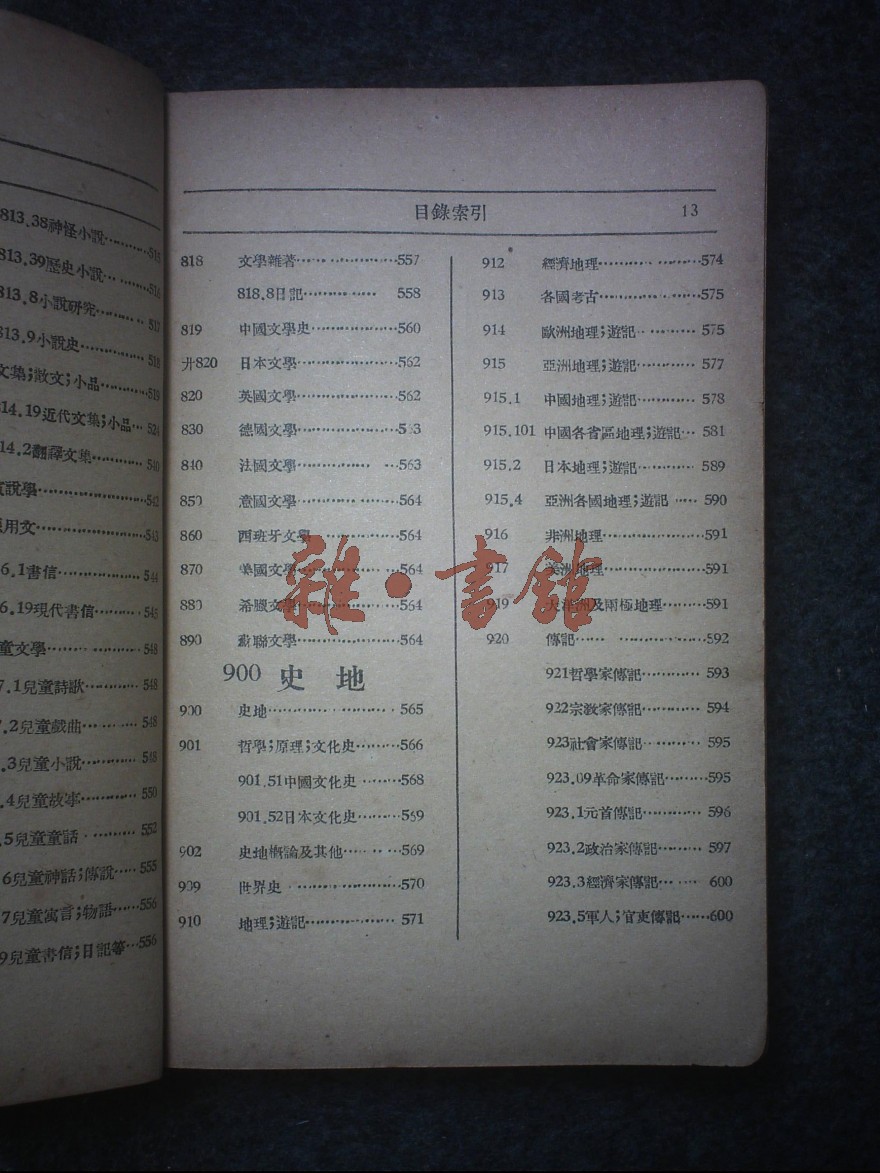 813.38神怪小說⋯⋯515
813.39歷史小說⋯⋯516
813.8小說研究⋯⋯517
813.9小說史⋯⋯518
文集;散文;小品⋯⋯519
14.19近代文集;小品⋯524
14.2翻譯文集⋯⋯540
說學⋯⋯542
用文⋯⋯543
6.1書信⋯⋯544
6.19現代書信⋯⋯545
童文學⋯⋯548
7.1兒童詩歌⋯⋯548
7.2兒童戲曲⋯⋯548
.3兒童小說⋯⋯548
.4兒童故事⋯⋯550
.5兒童童話⋯⋯552
6兒童神話;傳說⋯⋯555
7兒童寓言;物語⋯⋯556
9兒童書信;日記等⋯556
目錄索引 13
818 文學雜著⋯⋯557
818.8日記⋯⋯558
819 中國文學史⋯⋯560
廾820 日本文學⋯⋯562
820 英國文學⋯⋯562
830 德國文學⋯⋯563
840 法國文學⋯⋯563
850 意國文學⋯⋯564
860 西班牙文學⋯⋯564
870 美國文學⋯⋯564
880 希臘文學⋯⋯564
890 蘇聯文學⋯⋯564
900 史 地
900 史地⋯⋯565
901 哲學;原理;文化史⋯⋯566
901.51中國文化史⋯⋯568
901.52日本文化史⋯⋯569
902 史地概論及其他⋯⋯569
909 世界史⋯⋯570
910 地理;遊記⋯⋯571
912 經濟地理⋯⋯574
913 各國考古⋯⋯575
914 歐洲地理;遊記⋯⋯575
915 亞洲地理;遊記⋯⋯577
915.1 中國地理;遊記⋯⋯578
915.101 中國各省區地理;遊記⋯581
915.2 日本地理;遊記⋯⋯589
915.4 亞洲各國地理;遊記⋯⋯590
916 非洲地理⋯⋯591
917 美洲地理⋯⋯591
919 大洋洲及兩極地理⋯⋯591
920 傳記⋯⋯592
921哲學家傳記⋯⋯593
922宗教家傳記⋯⋯594
923社會家傳記⋯⋯595
923.09革命家傳記⋯⋯595
923.1元首傳記⋯⋯596
923.2政治家傳記⋯⋯597
923.3經濟家傳記⋯⋯600
923.5軍人;官吏傳記⋯⋯600
雜·書館